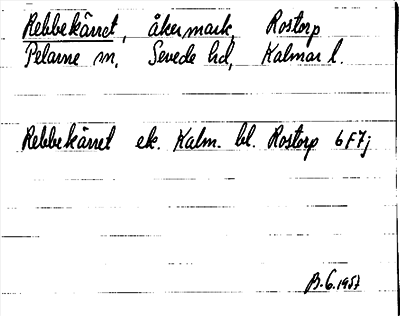 Rebbekärret, åkermark, Rostorp
Pelarne sn, Sevede hd, Kalmar l.
Rebbekärret ek. Kalm. bl. Rostorp 6F7j
B. G. 1957